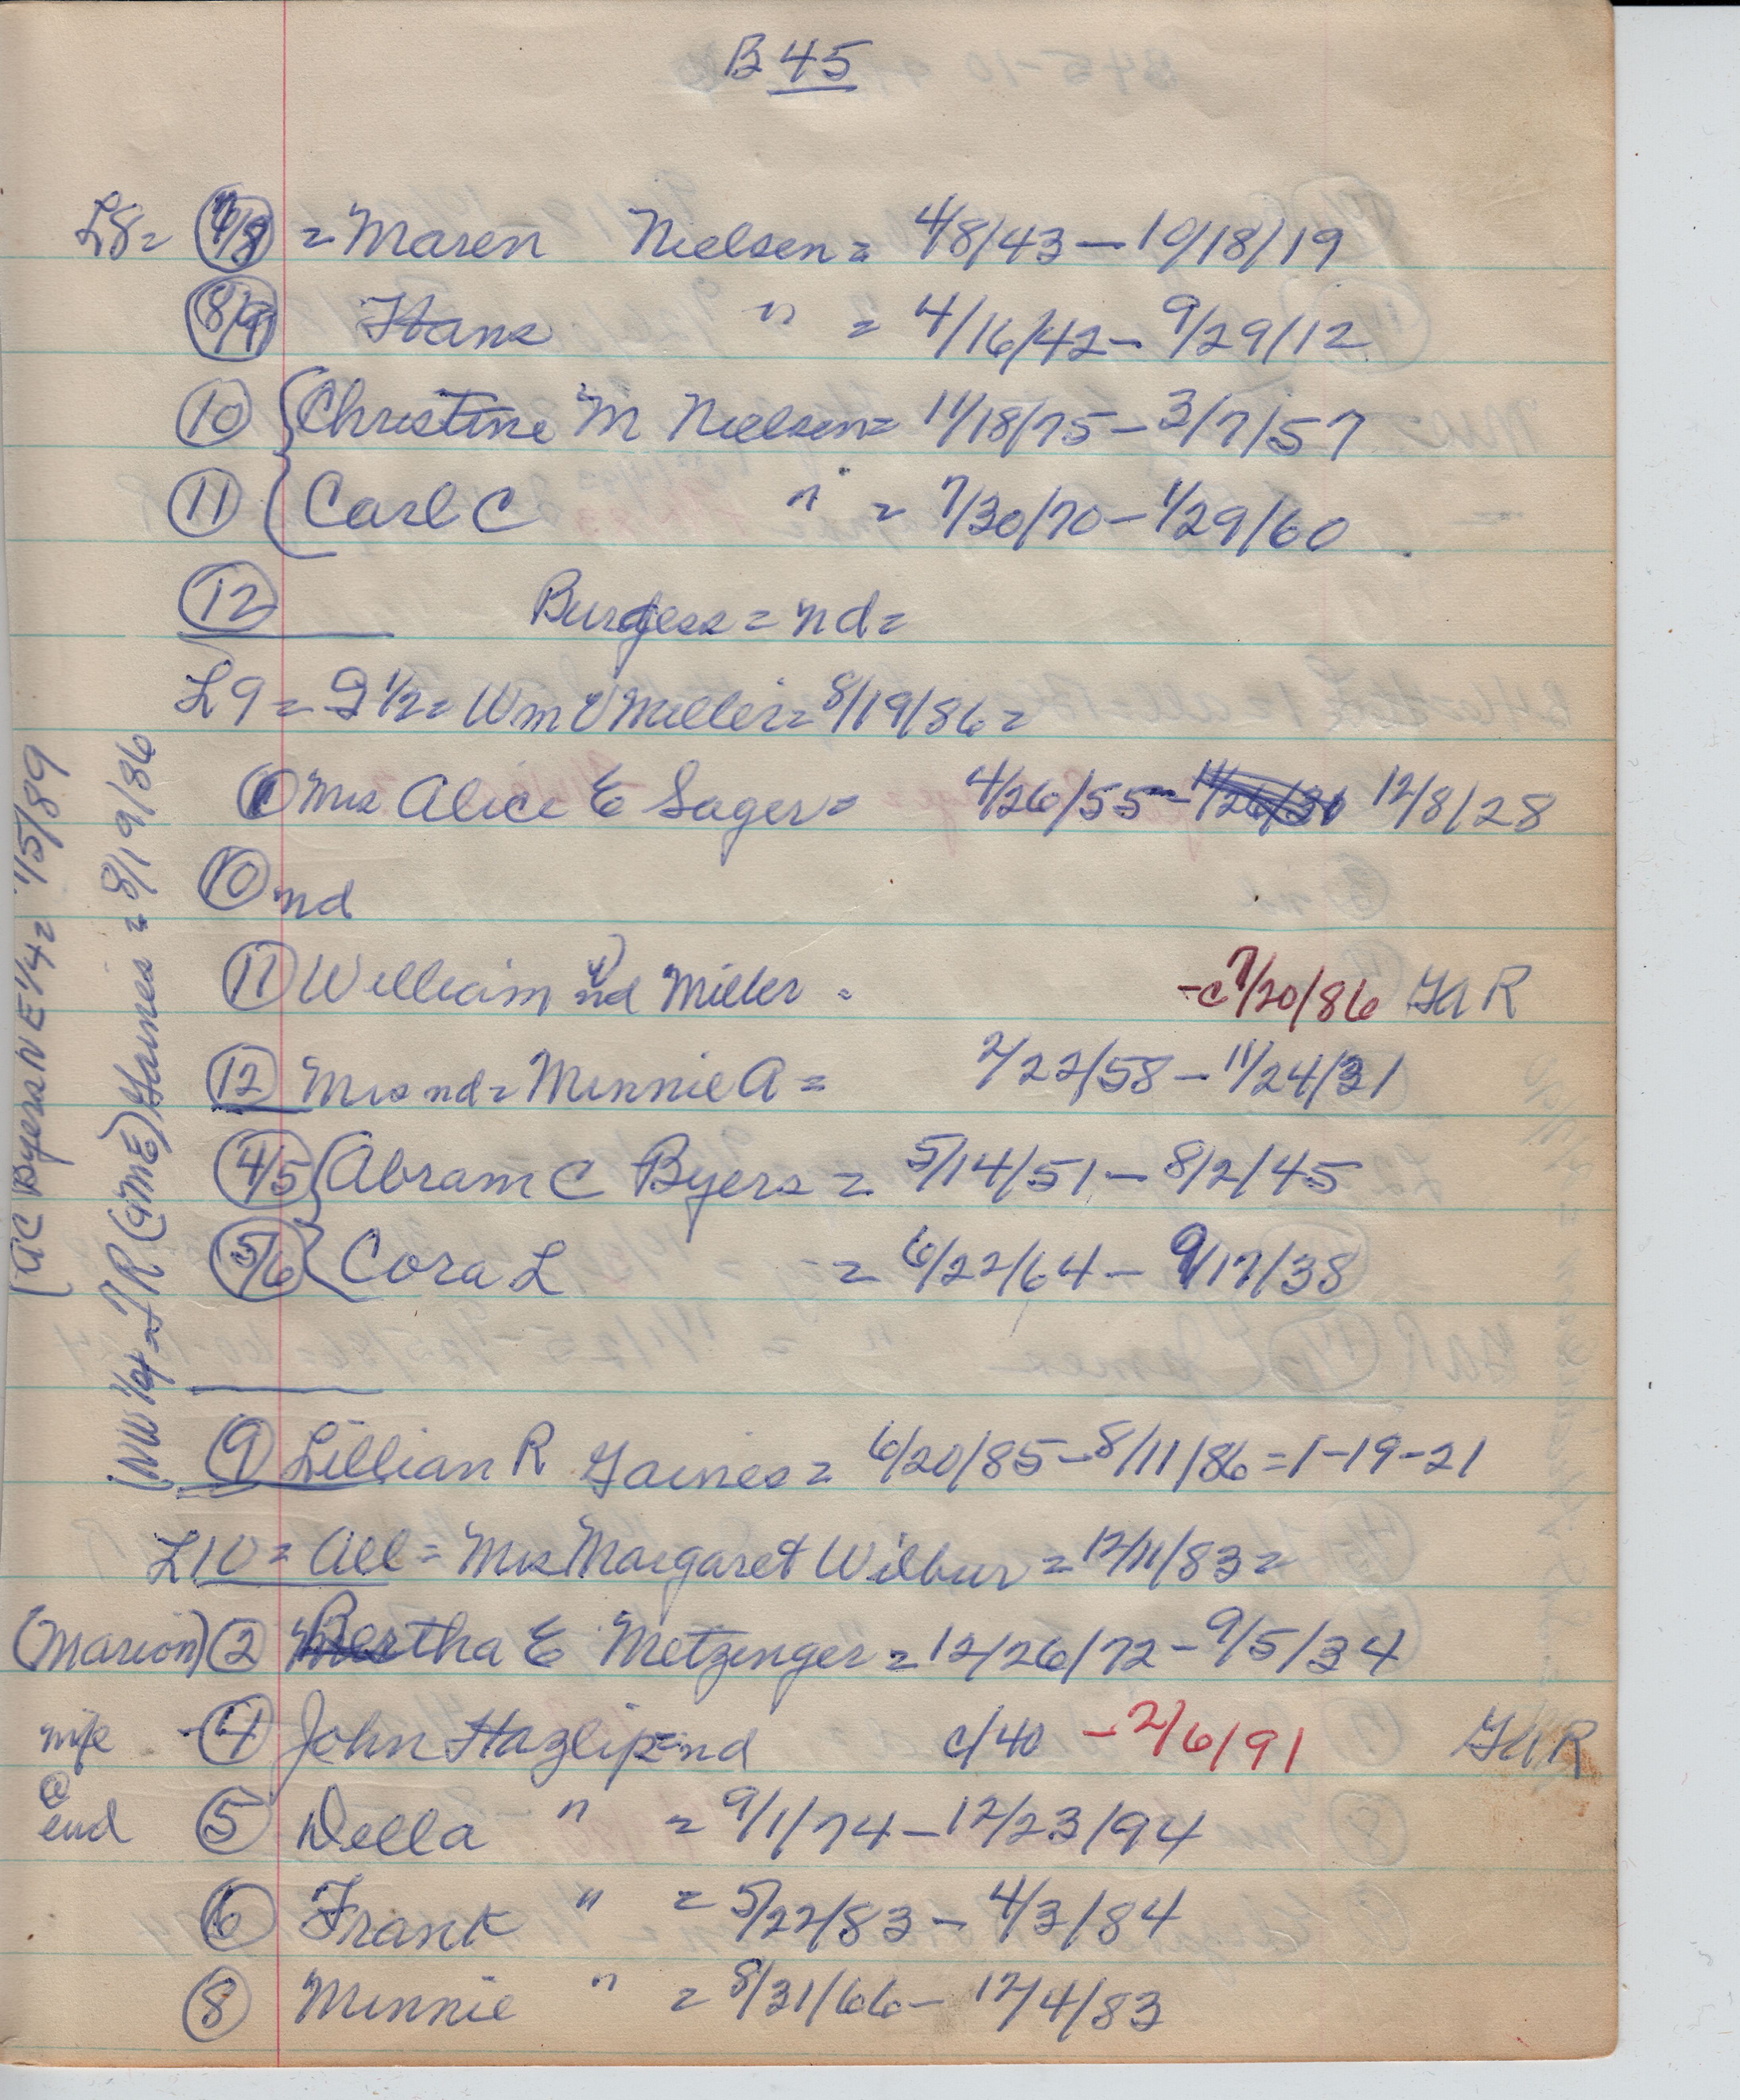 B 45
L8 = 7/8 = Maren Nielsen = 4/8/43 — 10/18/19
8/9 Hans " = 4/16/42 - 9/29/12
10 { Christine M Nielsen = 11/18/75 - 3/7/57
11 { Carl C " = 7/30/70 - 1/29/60
12 Burgess = nd =
L9 = S 1/2 = Wm V Miller = 8/19/86 =
Mrs Alice E Sager = 4/26/55 - 12/8/28
10 nd
11 William nd Miller = - c 7/20/86 GAR
12 Mrs nd = Minnie A = 2/22/58 - 11/24/31
4/5 { Abram C Byers = 5/14/51 - 8/2/45
5/6 { Cora L = 6/22/64 - 9/17/38
9 Lillian R Gaines = 6/20/85 - 8/11/86 = 1-19-21
L10 = All = Mrs Margaret Wilbur = 12/11/83 =
(Marion) 2 Bertha E Metzinger = 12/26/72 - 9/5/34
wife - 4 John Hazlip = nd c/40 - 2/6/91 GAR
@
end 5 Della " = 9/1/74 - 12/23/94
6 Frank " = 5/22/83 - 4/3/84
8 Minnie " = 8/31/66 - 12/4/83
(AC Byers NE 1/4 = 1/5/89
(NW 1/4 = J R (GME) Gaines = 8/19/86